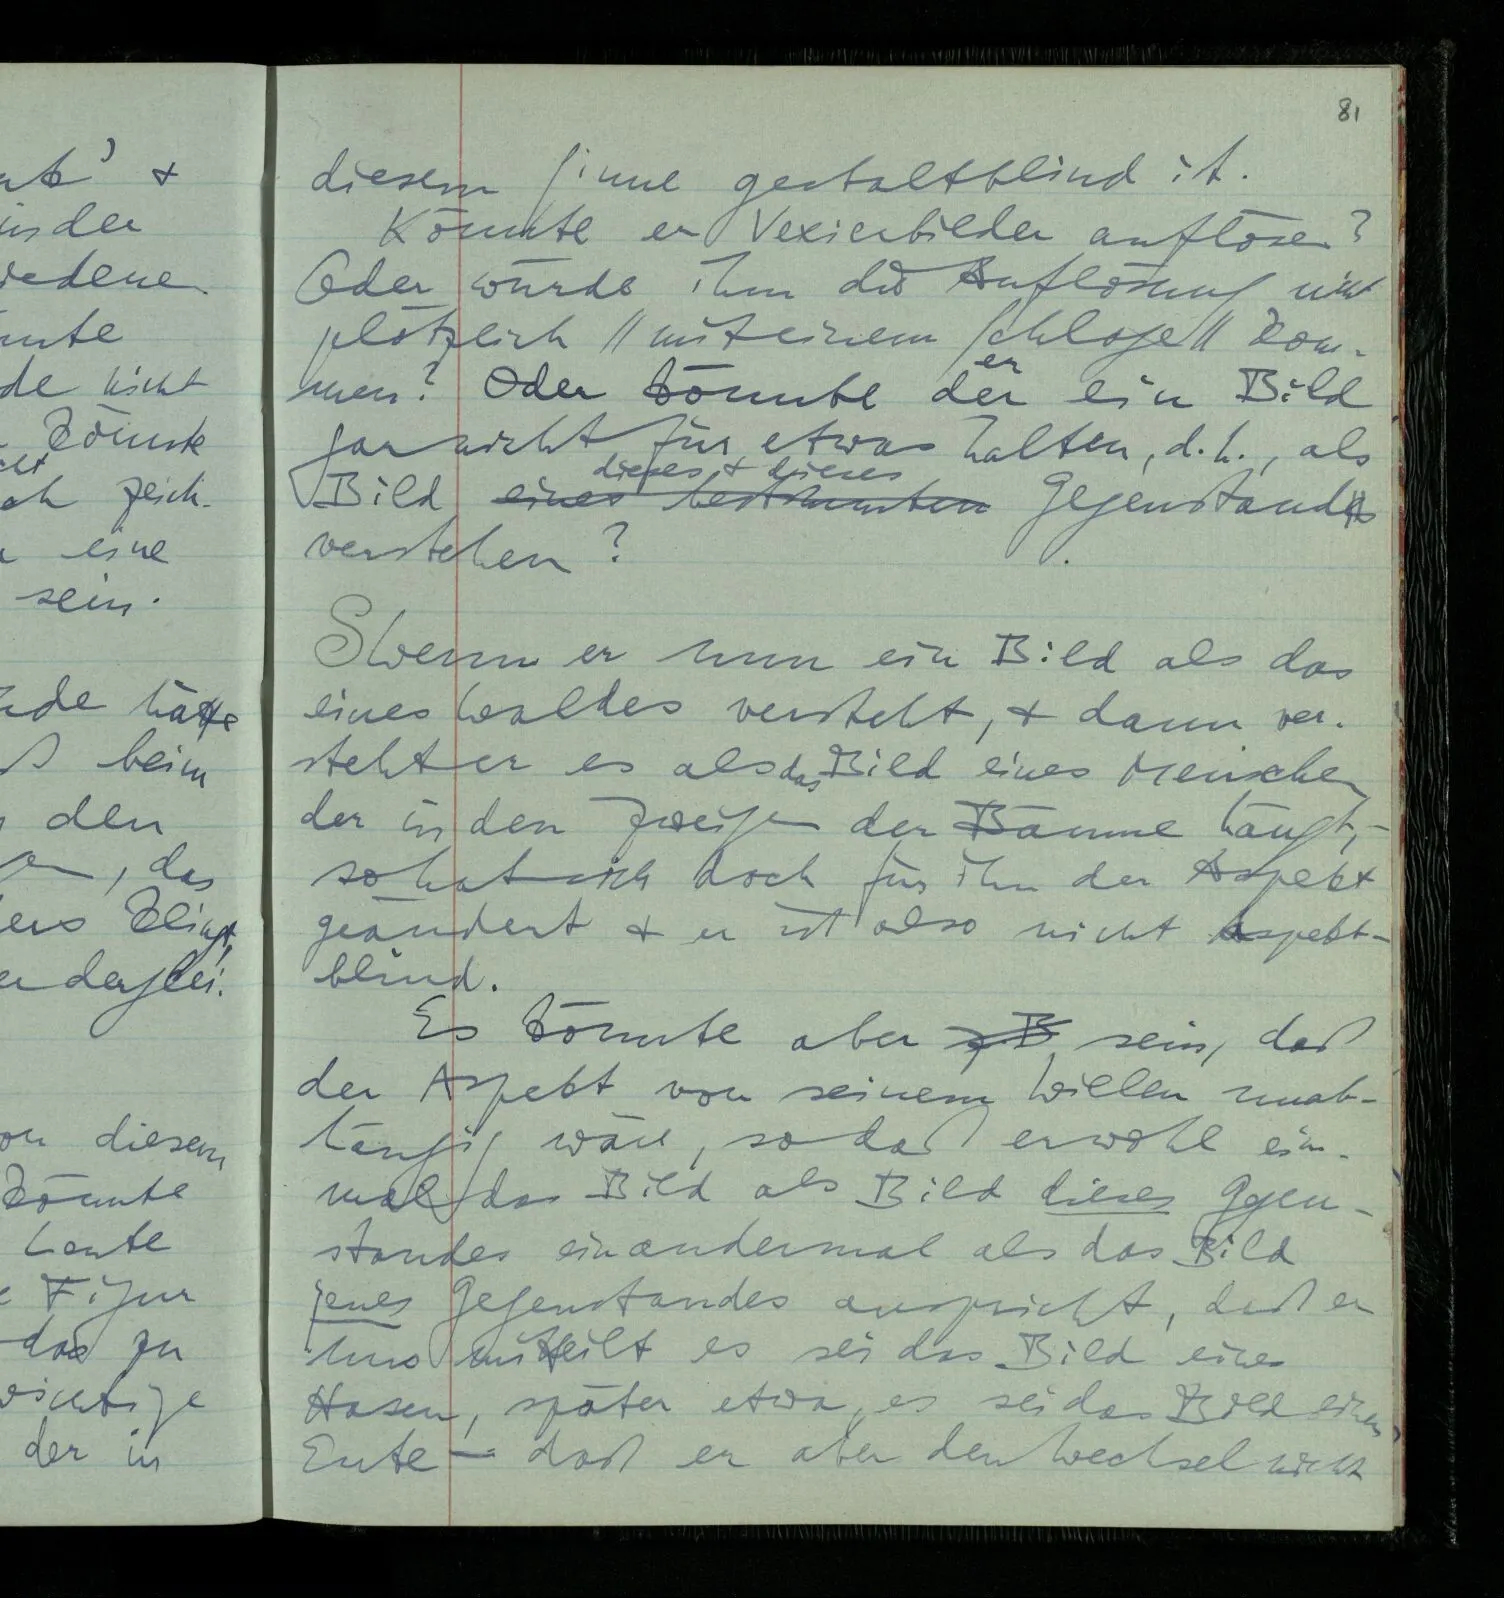 81
diesem Sinne gestaltblind ist.
Könnte er Vexierbilder auflösen?
Oder würde ihm die Auflösung nicht
plötzlich // mit einem Schlage // kom-
men? Oder könnte der er ein Bild
gar nicht für etwas halten, d.h., als
dieses & dieses
Bild eines bestimmten Gegenstands
verstehen?
S Wenn er nun ein Bild als das
eines Waldes versteht, & dann ver-
steht er es als das Bild eines Menschen
der in den Zweigen der Bäume hängt, –
so hat sich doch für ihn der Aspekt
geändert & er ist also nicht Aspekt-
blind.
Es könnte aber z B sein, daß
der Aspekt von seinem Willen unab-
hängig wäre, so daß er wohl ein-
mal das Bild als Bild dieses Ggen-
standes ein andermal als das Bild
jenes Gegenstandes anspricht, daß er
uns mitteilt es sei das Bild eines
Hasen, später etwa, es sei das Bild einer
Ente – daß er aber den Wechsel nicht
&
in der
iedene
nnte
de nicht
könnte
ch zeich-
eine
sein.
nde hätte
ß beim
den
, das
ers klingt,
er derglei-
on diesem
könnte
heute
Figur
das zu
wichtige
der in